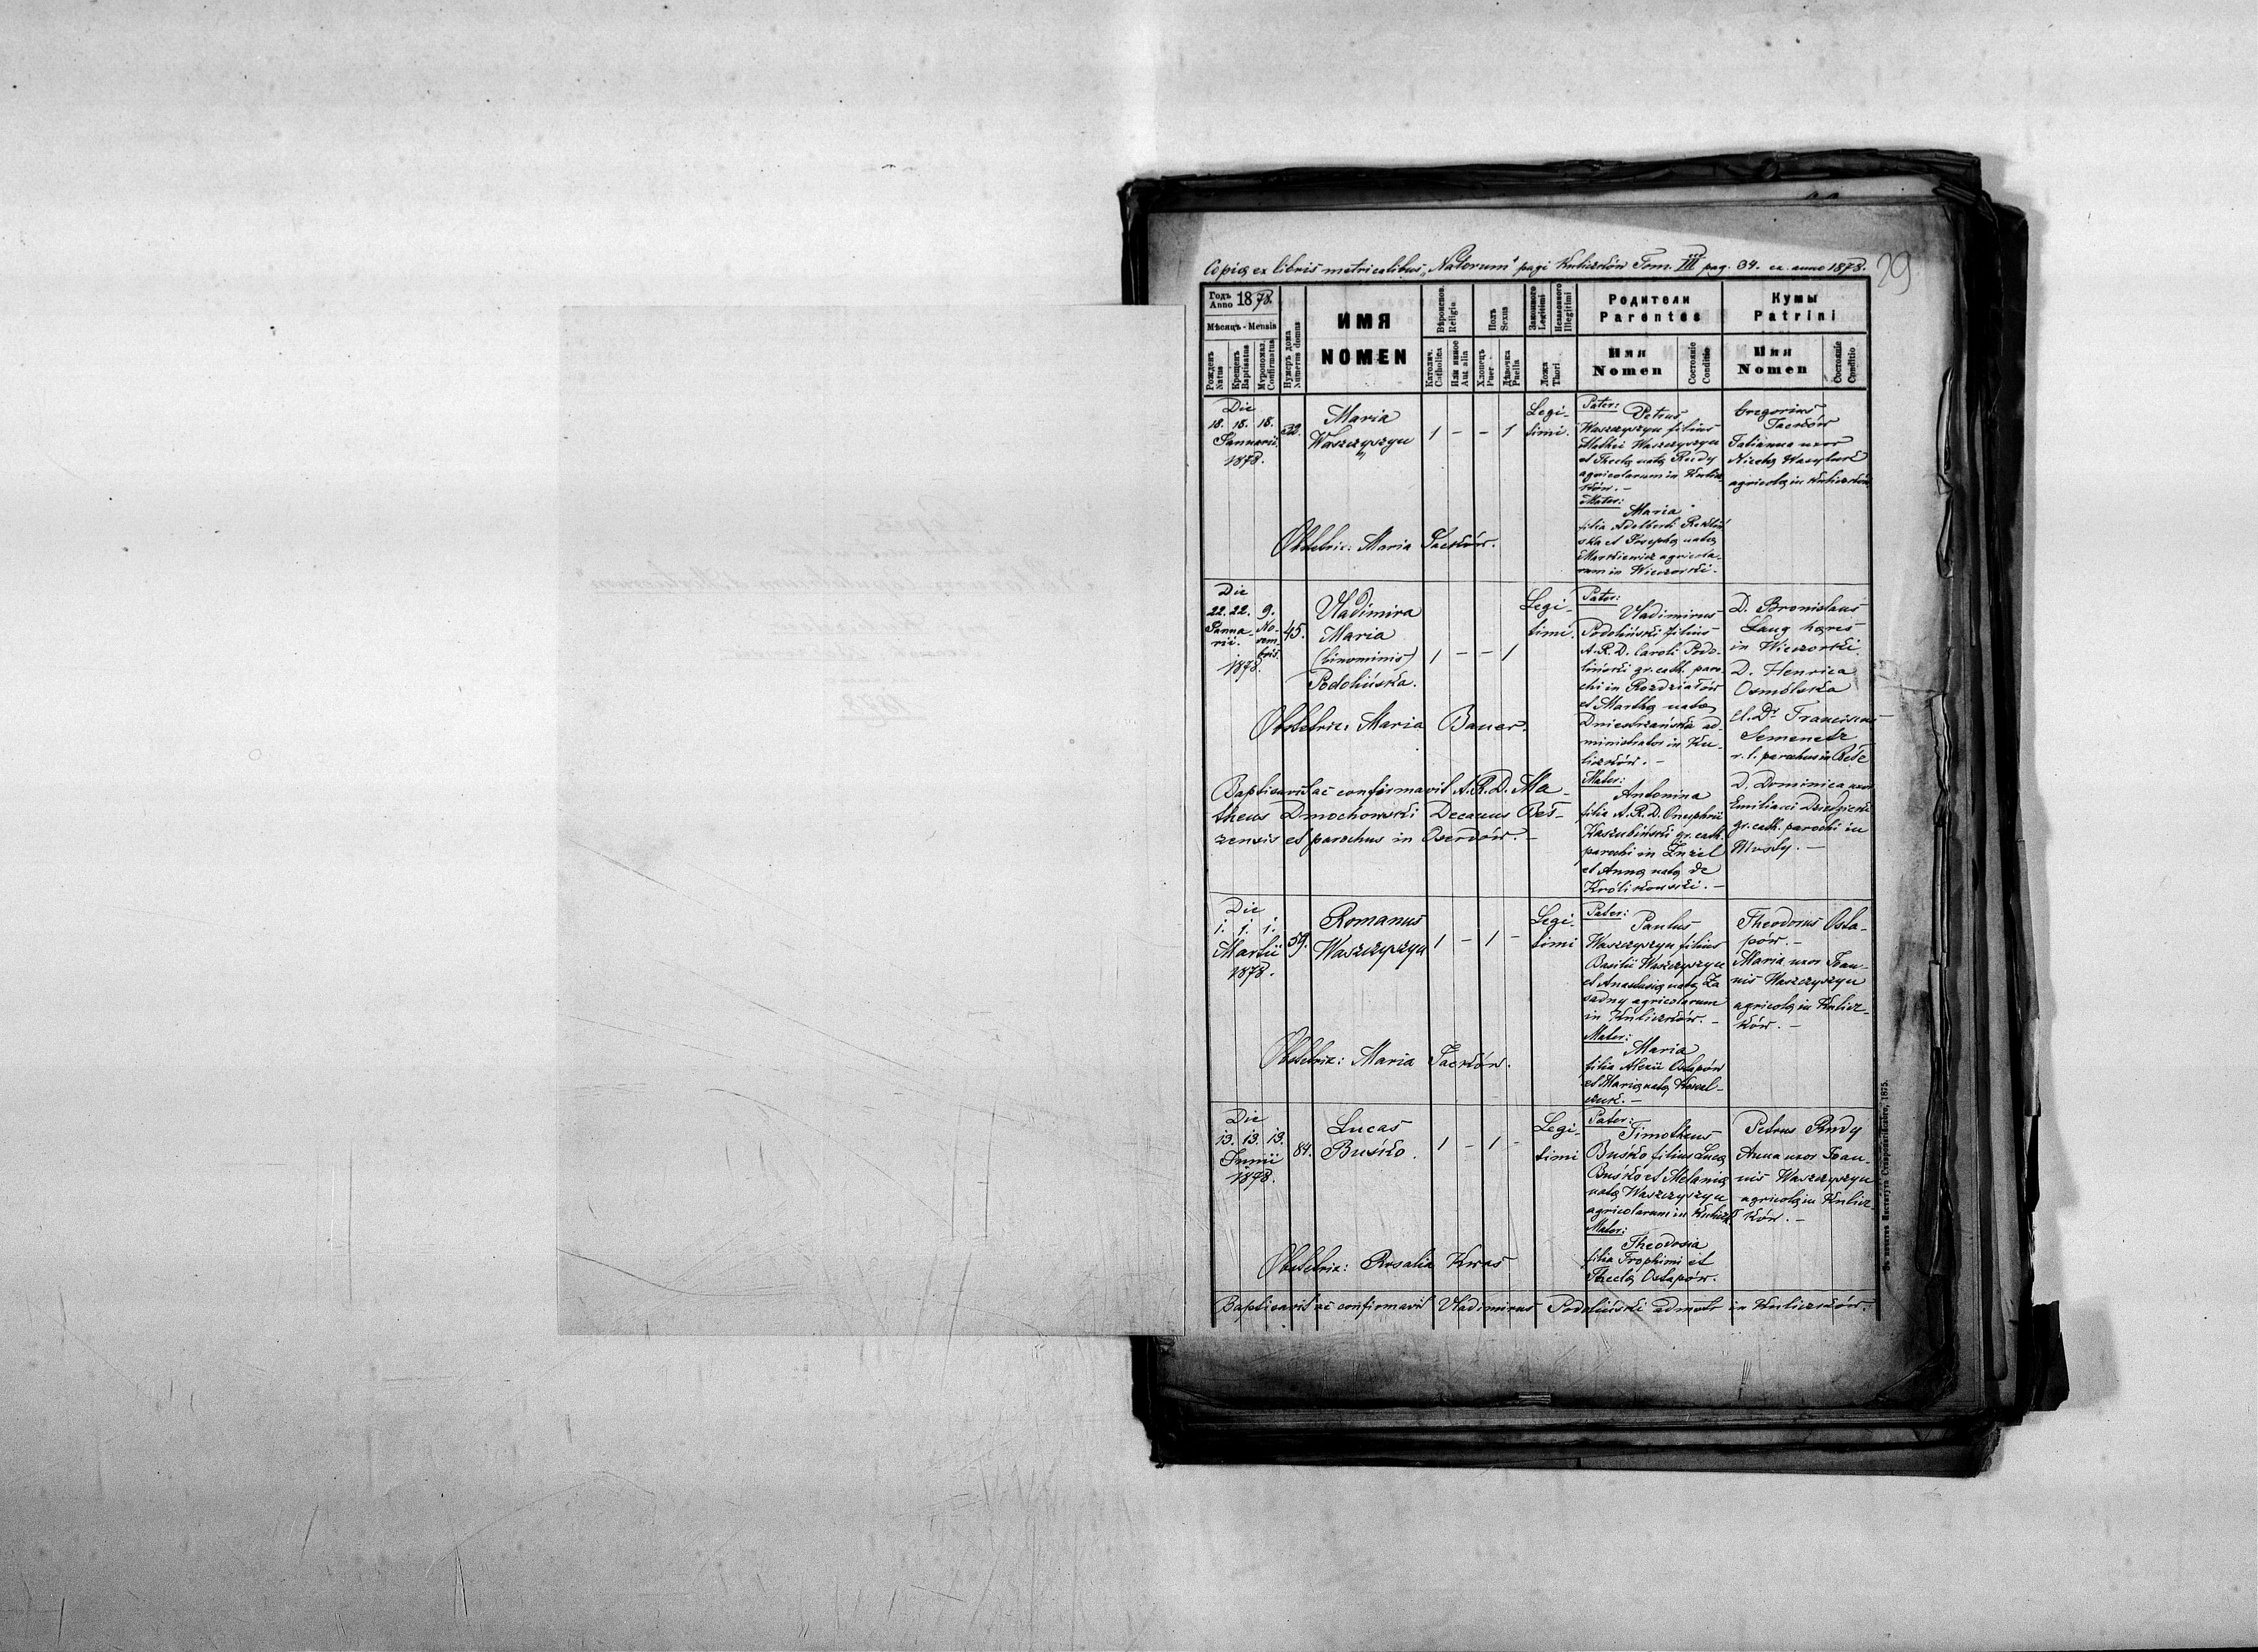 Copia ex libris metricalibus „Natorum" pagi Kuliczków Tom. III pag. 34. ex anno 1878.
29
Годъ
Anno 1878.
Мѣсяцъ - Mensis
Рожденъ
Natus
Крещенъ
Baptisatus
Мѵропомаз.
Confirmatus
Нумеръ дома
Numerus domus
ИМЯ
NOMEN
Вѣроисповѣд.
Religia
Католич.
Catholica
Или инное
Aut alia
Полъ
Sexus
Хлопець
Puer
Дѣвочка
Puella
Законного
Legitimi
Незаконного
Illegitimi
Ложа
Thori
Родители
Parentes
Имя
Nomen
Состояніе
Conditio
Кумы
Patrini
Имя
Nomen
Состояніе
Conditio
Die
18. 18. 18.
Januarii
1878.
32.
Maria
Waszczyszyn
1 - - 1
Legi-
timi.
Pater:
Petrus
Waszczyszyn filius
Mathei Waszczyszyn
et Thecla nata Rudy
agricolarum in Kulicz-
ków. -
Mater:
Maria
filia Adalberti
et Josepha nata
Markiewicz agricola-
rum in Wieczorki.
Gregorius
Jacków
Tatianna uxor
Niceta Wasyluk
agricola in Kuliczków
Obstetrix: Maria Jacków.
Die
22. 22. 9.
Janua-
rii. No-
vem-
bris.
1878.
45.
Vladimira
Maria
(binominis)
Podolińska.
1 - - 1
Legi-
timi.
Pater:
Vladimirus
Podoliński filius
A. R. D. Caroli Podo-
liński gr. cath. paro-
chi in Rozdziałów
et Martha nata
Dniestrzańska ad-
ministrator in Ku-
liczków. -
Mater:
Antonina
filia A. R. D. Onuphrii
Kaszubiński gr. cath.
parochi in Żużel
et Anna nata de
Krolikowski. -
D. Bronislaus
Lang haeres
in Wieczorki.
D. Henrica
Osmólska
A. Dr Franciscus
Semenetz
r. l. parochus in Bełz
D. Dominica uxor
Emiliani Dziedzicki
gr. cath. parochi in
Mosty. -
Obstetrix: Maria Bauer.
Baptisavit ac confirmavit A. R. D. Ma-
theus Dmochowski Decanus Beł-
zensis et parochus in Oserdów. -
Die
1. 1. 1.
Martii
1878.
59.
Romanus
Waszczyszyn
1 - 1 -
Legi-
timi
Pater:
Paulus
Waszczyszyn filius
Basilii Waszczyszyn
et Anastasia nata Za
sadny agricolarum
in Kuliczków. -
Mater:
Maria
filia Alexii Ostapów
et Maria nata Kowal-
czuk. -
Theodorus Osta-
pów. -
Maria uxor Joan-
nis Waszczyszyn
agricola in Kulicz-
ków. -
Obstetrix: Maria Jacków.
Die
13. 13. 13.
Junii
1878.
84.
Lucas
Buśko.
1 - 1 -
Legi-
timi
Pater:
Timotheus
Buśko filius Luca
Buśko et Melania
nata Waszczyszyn
agricolarum in Kuliczk.
Mater:
Theodosia
filia Trophimi et
Thecla Ostapów.
Petrus Rudy
Anna uxor Joan-
nis Waszczyszyn
agricola in Kulicz-
ków. -
Obstetrix: Rosalia Kwas
Baptisavit ac confirmavit Vladimirus Podoliński admstr in Kuliczków.
Въ печатни Института Ставропигійского, 1875.